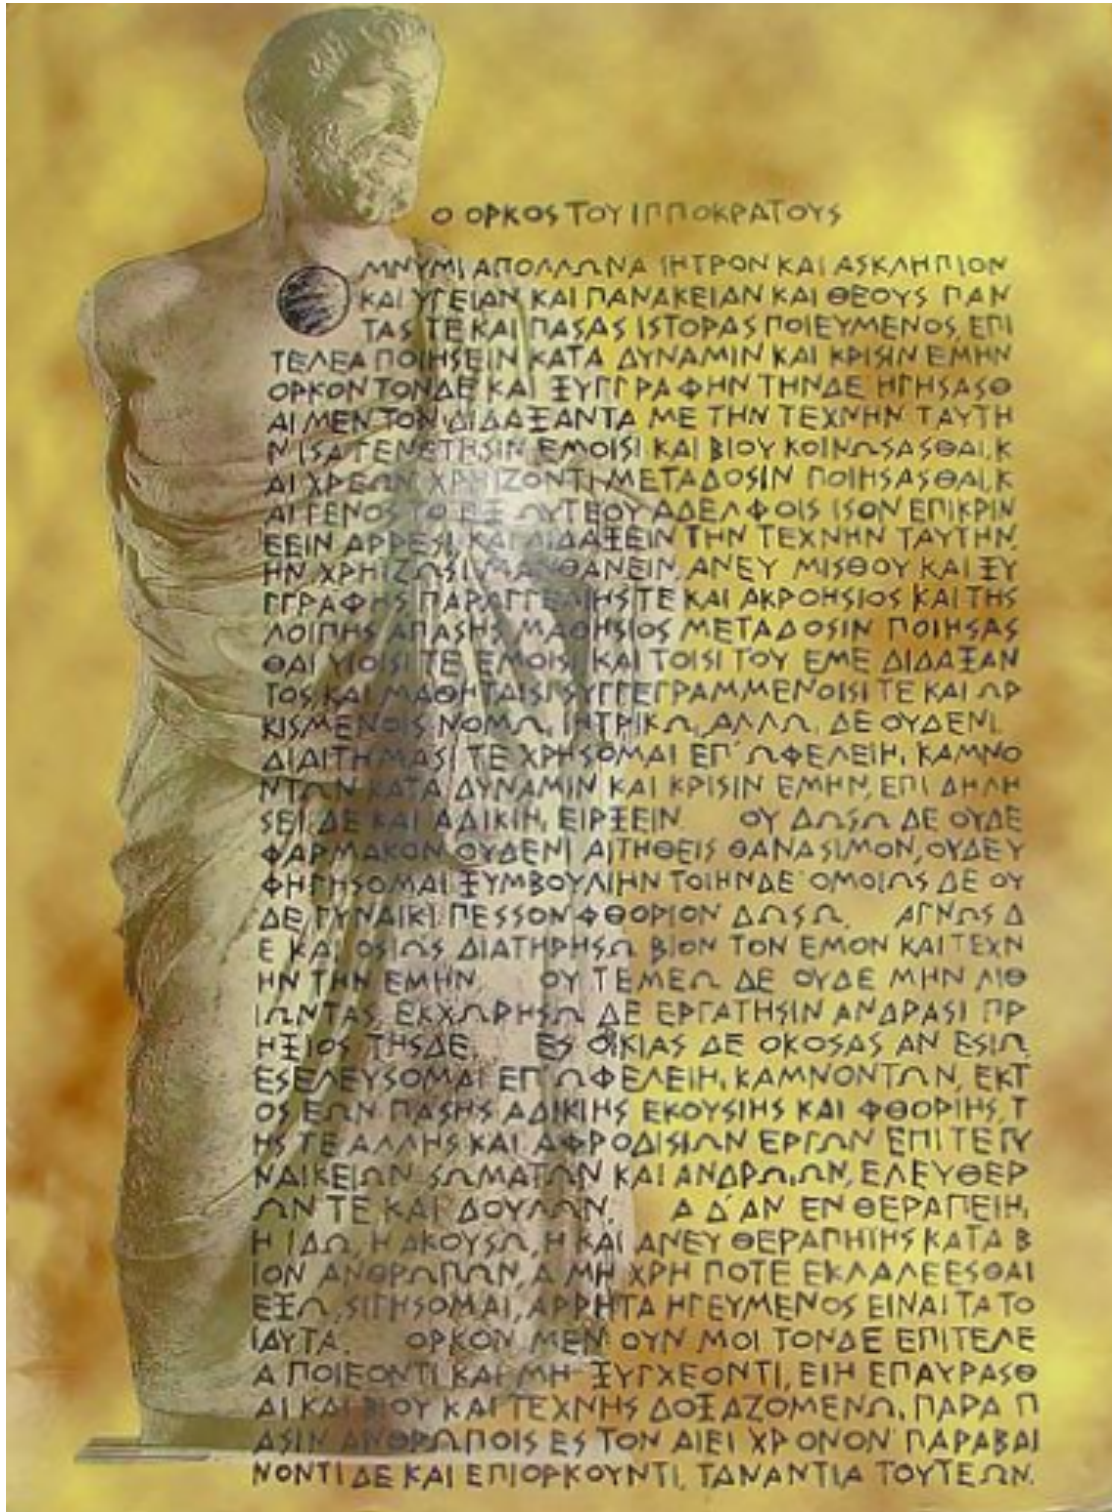 Ο ΟΡΚΟS ΤΟΥ ΙΠΠΟΚΡΑΤΟΥS
ΜΝΥΜΙ ΑΠΟΛΛΩΝΑ ΙΗΤΡΟΝ ΚΑΙ ΑSΚΛΗΠΙΟΝ
ΚΑΙ ΥΓΕΙΑΝ ΚΑΙ ΠΑΝΑΚΕΙΑΝ ΚΑΙ ΘΕΟΥS ΠΑΝ
ΤΑS ΤΕ ΚΑΙ ΠΑSΑS ΙSΤΟΡΑS ΠΟΙΕΥΜΕΝΟS, ΕΠΙ
ΤΕΛΕΑ ΠΟΙΗSΕΙΝ ΚΑΤΑ ΔΥΝΑΜΙΝ ΚΑΙ ΚΡΙSΙΝ ΕΜΗΝ
ΟΡΚΟΝ ΤΟΝΔΕ ΚΑΙ ΞΥΓΓΡΑΦΗΝ ΤΗΝΔΕ ΗΓΗSΑSΘ
ΑΙ ΜΕΝ ΤΟΝ ΔΙΔΑΞΑΝΤΑ ΜΕ ΤΗΝ ΤΕΧΝΗΝ ΤΑΥΤΗ
Ν ΙSΑ ΓΕΝΕΤΗSΙΝ ΕΜΟΙSΙ ΚΑΙ ΒΙΟΥ ΚΟΙΝΩSΑSΘΑΙ, Κ
ΑΙ ΧΡΕΩΝ ΧΡΗΙΖΟΝΤΙ ΜΕΤΑΔΟSΙΝ ΠΟΙΗSΑSΘΑΙ, Κ
ΑΙ ΓΕΝΟS ΤΟ ΕΞ ΩΥΤΕΟΥ ΑΔΕΛΦΟΙS ΙSΟΝ ΕΠΙΚΡΙΝ
ΕΕΙΝ ΑΡΡΕSΙ, ΚΑΙ ΔΙΔΑΞΕΙΝ ΤΗΝ ΤΕΧΝΗΝ ΤΑΥΤΗΝ,
ΗΝ ΧΡΗΙΖΩSΙ ΜΑΝΘΑΝΕΙΝ, ΑΝΕΥ ΜΙSΘΟΥ ΚΑΙ ΞΥ
ΓΓΡΑΦΗS ΠΑΡΑΓΓΕΛΙΗS ΤΕ ΚΑΙ ΑΚΡΟΗSΙΟS ΚΑΙ ΤΗS
ΛΟΙΠΗS ΑΠΑSΗS ΜΑΘΗSΙΟS ΜΕΤΑΔΟSΙΝ ΠΟΙΗSΑS
ΘΑΙ ΥΙΟΙSΙ ΤΕ ΕΜΟΙSΙ ΚΑΙ ΤΟΙSΙ ΤΟΥ ΕΜΕ ΔΙΔΑΞΑΝ
ΤΟS, ΚΑΙ ΜΑΘΗΤΑΙSΙ SΥΓΓΕΓΡΑΜΜΕΝΟΙSΙ ΤΕ ΚΑΙ ΩΡ
ΚΙSΜΕΝΟΙS ΝΟΜΩ, ΙΗΤΡΙΚΩ, ΑΛΛΩ, ΔΕ ΟΥΔΕΝΙ.
ΔΙΑΙΤΗΜΑSΙ ΤΕ ΧΡΗSΟΜΑΙ ΕΠ' ΩΦΕΛΕΙΗ, ΚΑΜΝΟ
ΝΤΩΝ ΚΑΤΑ ΔΥΝΑΜΙΝ ΚΑΙ ΚΡΙSΙΝ ΕΜΗΝ, ΕΠΙ ΔΗΛΗ
SΕΙ ΔΕ ΚΑΙ ΑΔΙΚΙΗ, ΕΙΡΞΕΙΝ. ΟΥ ΔΩSΩ ΔΕ ΟΥΔΕ
ΦΑΡΜΑΚΟΝ ΟΥΔΕΝΙ ΑΙΤΗΘΕΙS ΘΑΝΑSΙΜΟΝ, ΟΥΔΕ Υ
ΦΗΓΗSΟΜΑΙ ΞΥΜΒΟΥΛΙΗΝ ΤΟΙΗΝΔΕ· ΟΜΟΙΩS ΔΕ ΟΥ
ΔΕ ΓΥΝΑΙΚΙ ΠΕSSΟΝ ΦΘΟΡΙΟΝ ΔΩSΩ. ΑΓΝΩS Δ
Ε ΚΑΙ ΟSΙΩS ΔΙΑΤΗΡΗSΩ ΒΙΟΝ ΤΟΝ ΕΜΟΝ ΚΑΙ ΤΕΧΝ
ΗΝ ΤΗΝ ΕΜΗΝ. ΟΥ ΤΕΜΕΩ ΔΕ ΟΥΔΕ ΜΗΝ ΛΙΘ
ΙΩΝΤΑS, ΕΚΧΩΡΗSΩ ΔΕ ΕΡΓΑΤΗSΙΝ ΑΝΔΡΑSΙ ΠΡ
ΗΞΙΟS ΤΗSΔΕ. ΕS ΟΙΚΙΑS ΔΕ ΟΚΟSΑS ΑΝ ΕSΙΩ,
ΕSΕΛΕΥSΟΜΑΙ ΕΠ' ΩΦΕΛΕΙΗ, ΚΑΜΝΟΝΤΩΝ, ΕΚΤ
ΟS ΕΩΝ ΠΑSΗS ΑΔΙΚΙΗS ΕΚΟΥSΙΗS ΚΑΙ ΦΘΟΡΙΗS, Τ
ΗS ΤΕ ΑΛΛΗS ΚΑΙ ΑΦΡΟΔΙSΙΩΝ ΕΡΓΩΝ ΕΠΙ ΤΕ ΓΥ
ΝΑΙΚΕΙΩΝ SΩΜΑΤΩΝ ΚΑΙ ΑΝΔΡΩΩΝ, ΕΛΕΥΘΕΡ
ΩΝ ΤΕ ΚΑΙ ΔΟΥΛΩΝ. Α Δ' ΑΝ ΕΝ ΘΕΡΑΠΕΙΗ,
Η ΙΔΩ, Η ΑΚΟΥSΩ, Η ΚΑΙ ΑΝΕΥ ΘΕΡΑΠΗΙΗS ΚΑΤΑ Β
ΙΟΝ ΑΝΘΡΩΠΩΝ, Α ΜΗ ΧΡΗ ΠΟΤΕ ΕΚΛΑΛΕΕSΘΑΙ
ΕΞΩ, SΙΓΗSΟΜΑΙ, ΑΡΡΗΤΑ ΗΓΕΥΜΕΝΟS ΕΙΝΑΙ ΤΑ ΤΟ
ΙΑΥΤΑ. ΟΡΚΟΝ ΜΕΝ ΟΥΝ ΜΟΙ ΤΟΝΔΕ ΕΠΙΤΕΛΕ
Α ΠΟΙΕΟΝΤΙ ΚΑΙ ΜΗ ΞΥΓΧΕΟΝΤΙ, ΕΙΗ ΕΠΑΥΡΑSΘ
ΑΙ ΚΑΙ ΒΙΟΥ ΚΑΙ ΤΕΧΝΗS ΔΟΞΑΖΟΜΕΝΩ, ΠΑΡΑ Π
ΑSΙΝ ΑΝΘΡΩΠΟΙS ΕS ΤΟΝ ΑΙΕΙ ΧΡΟΝΟΝ· ΠΑΡΑΒΑΙ
ΝΟΝΤΙ ΔΕ ΚΑΙ ΕΠΙΟΡΚΟΥΝΤΙ, ΤΑΝΑΝΤΙΑ ΤΟΥΤΕΩΝ.